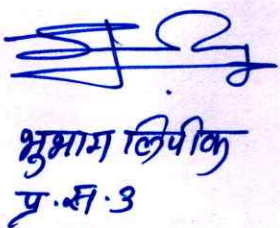 भुभाग लिपीक
प्र.स.३